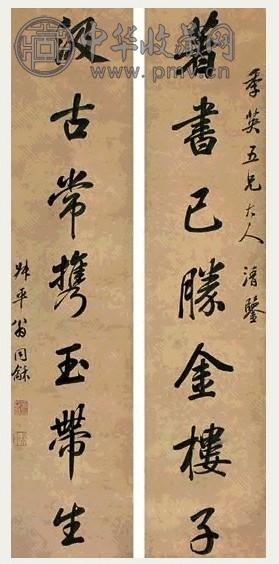 季英五兄大人清鑒
著書已勝金樓子
汲古常攜玉帶生
叔平翁同龢
中华收藏网
www.pmv.cn